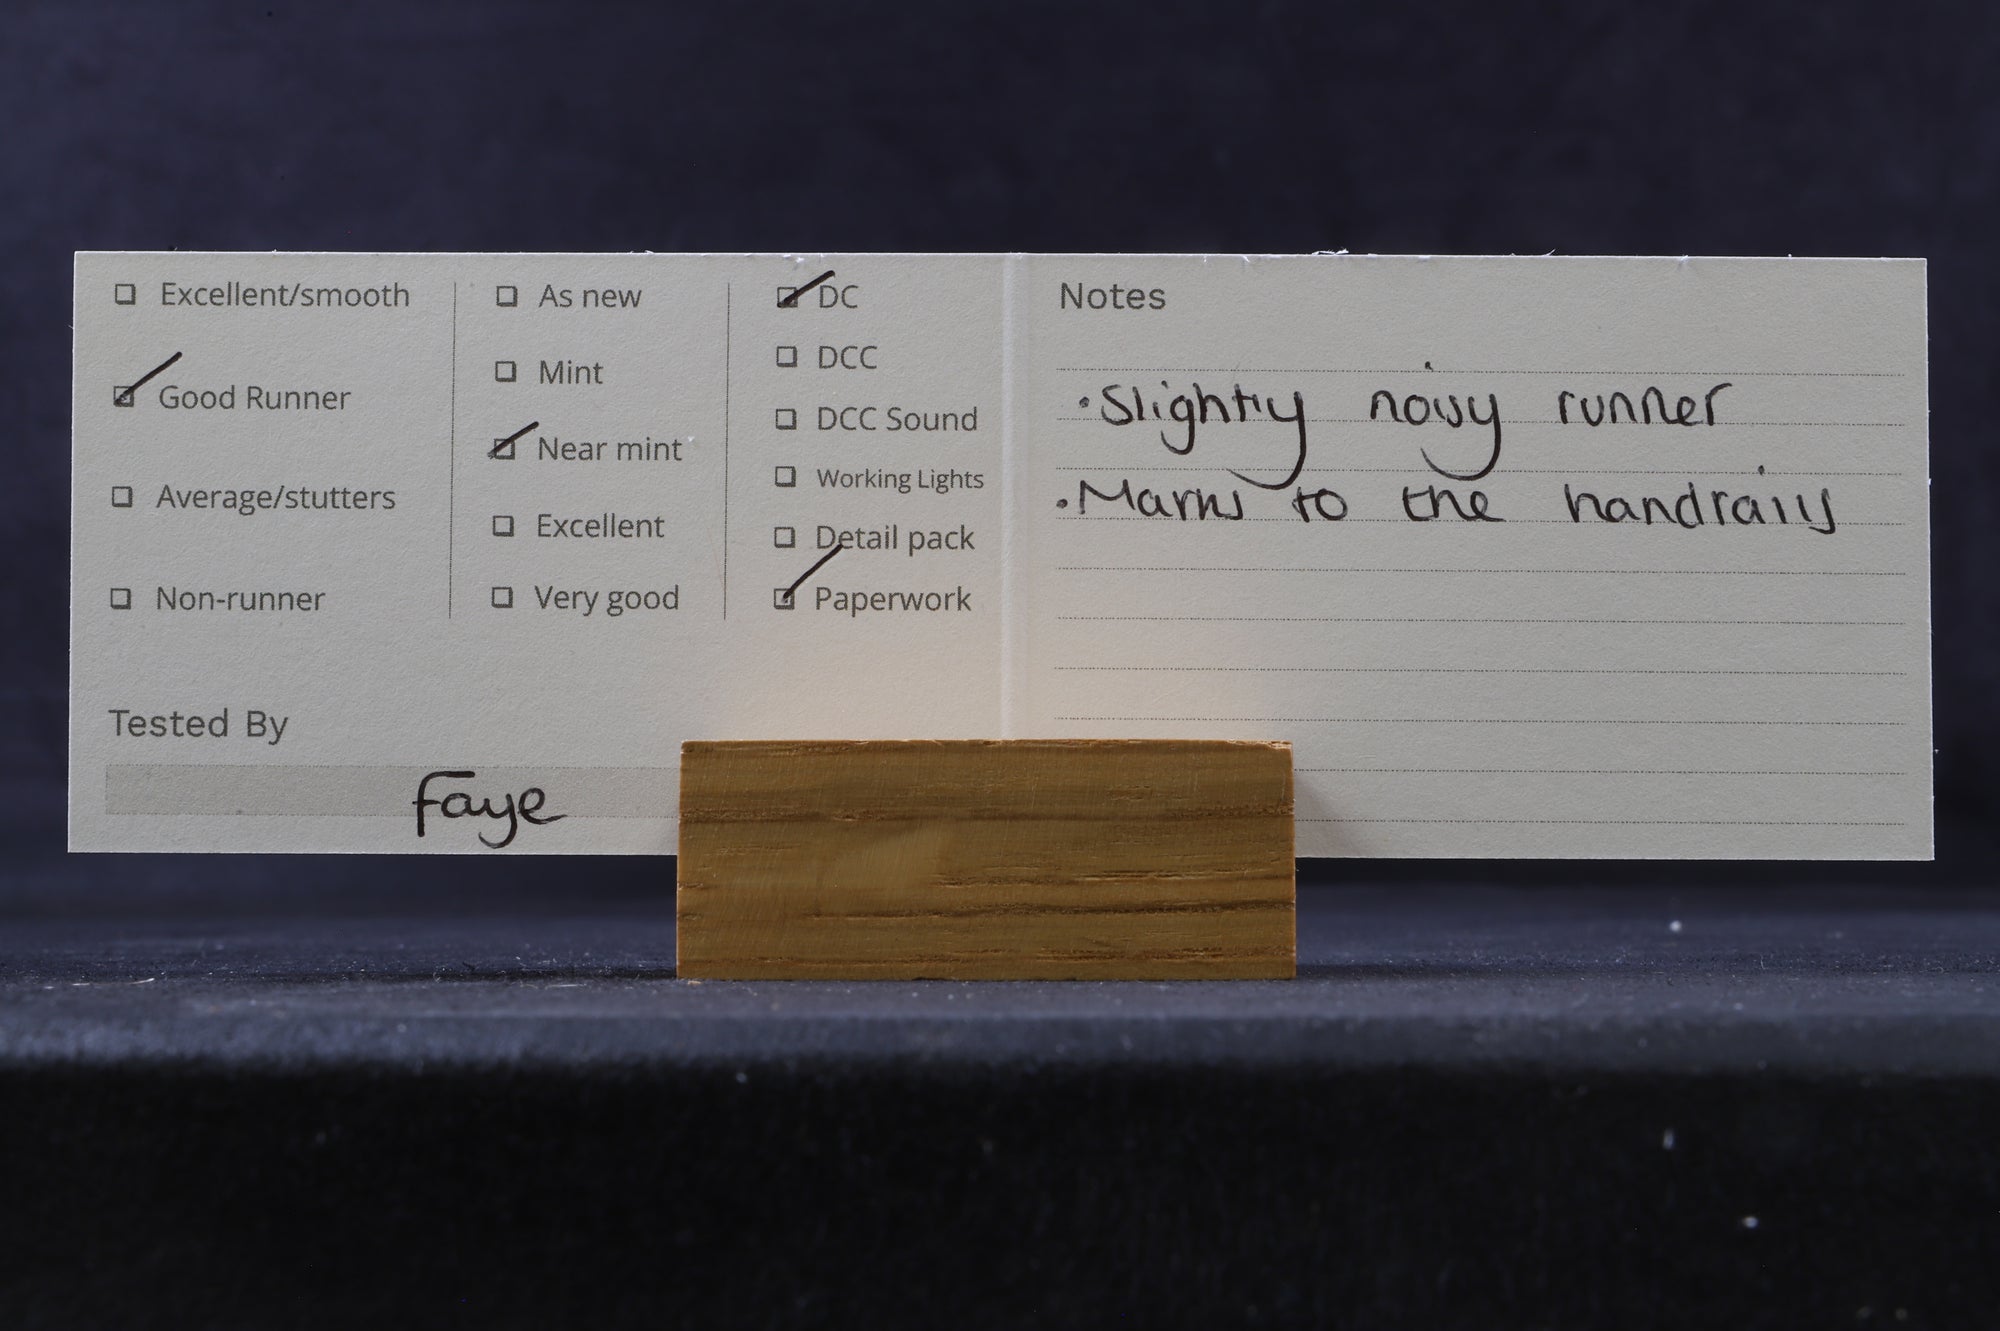 Excellent/smooth
Good Runner
Average/stutters
Non-runner
As new
Mint
Near mint
Excellent
Very good
DC
DCC
DCC Sound
Working Lights
Detail pack
Paperwork
Tested By
Faye
Notes
• Slightly noisy runner
• Marks to the handrails